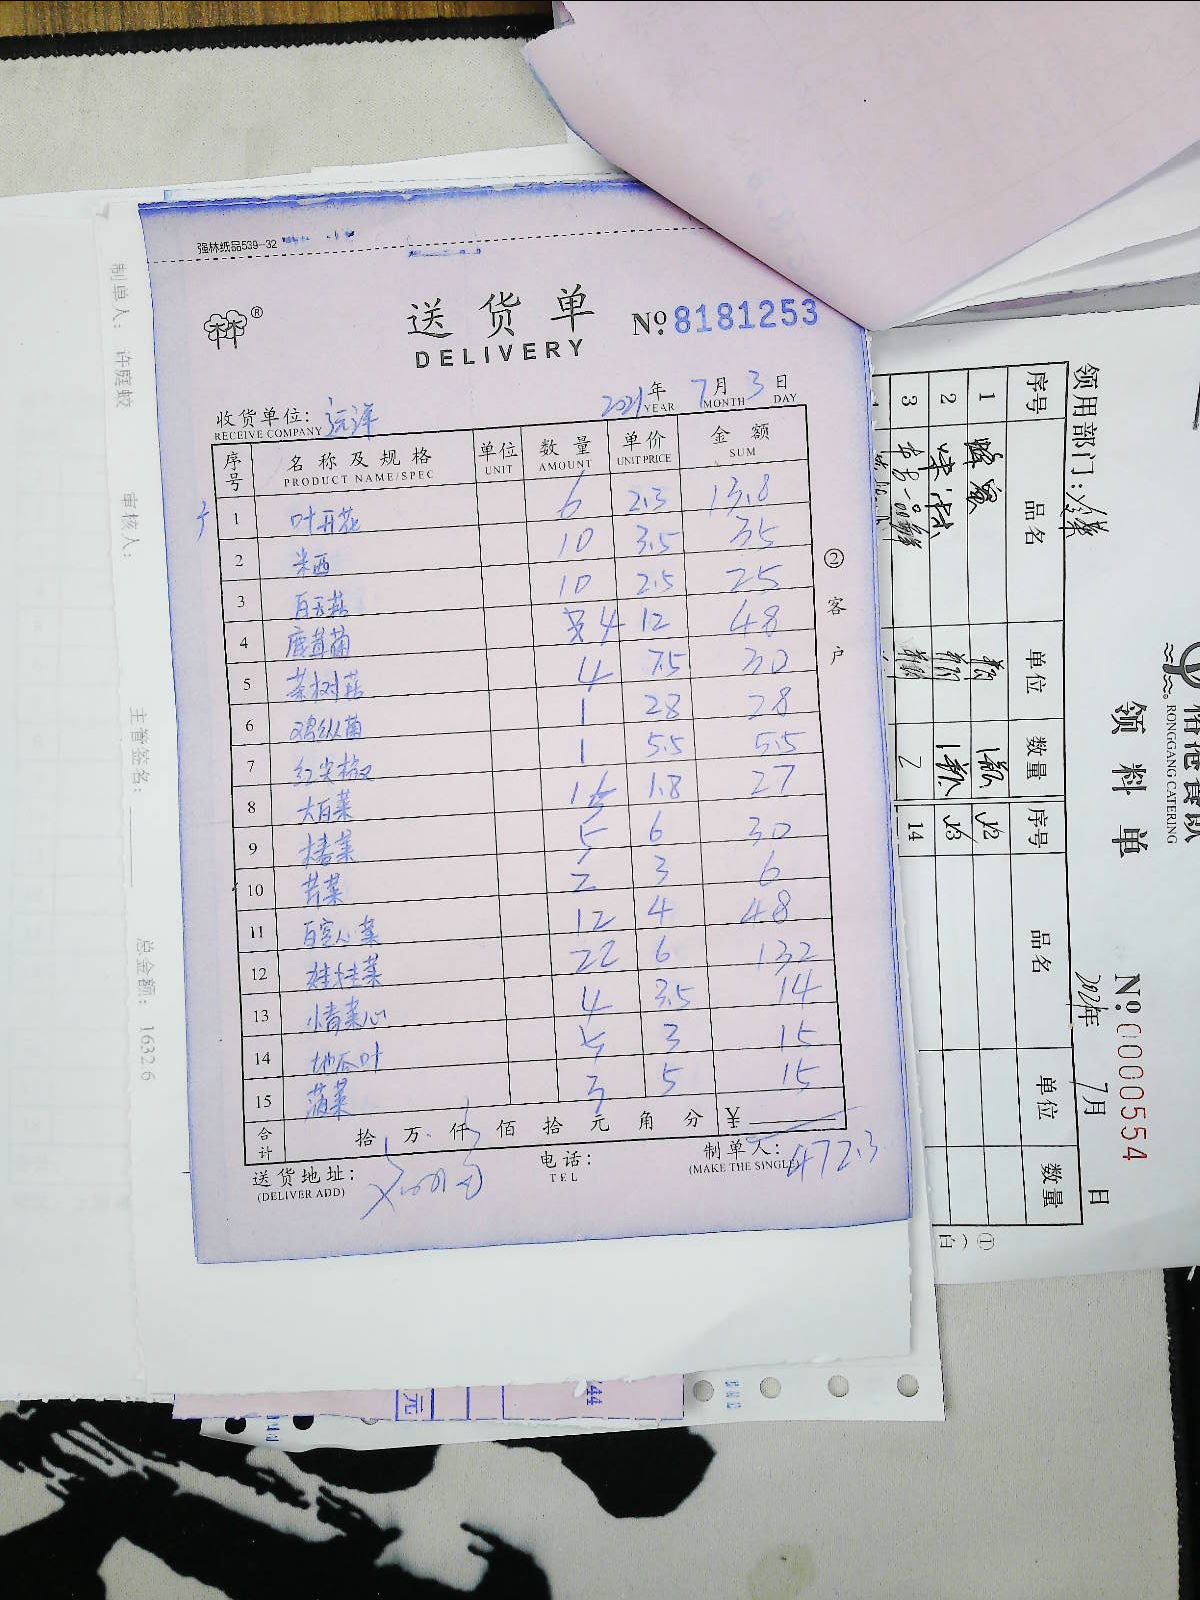 强林纸品539-32
送货单
DELIVERY
№ 8181253
2021年 7月 3日
YEAR MONTH DAY
收货单位: 远洋
RECEIVE COMPANY
序号 名称及规格 单位 数量 单价 金额
PRODUCT NAME/SPEC UNIT AMOUNT UNIT PRICE SUM
1 叶开花 6 2.3 13.8
2 米西 10 3.5 35
3 白玉菇 10 2.5 25
4 鹿茸菌 4 12 48
5 茶树菇 4 7.5 30
6 鸡纵菌 1 28 28
7 红尖椒 1 5.5 5.5
8 大白菜 15 1.8 27
9 5 6 30
10 芹菜 2 3 6
11 12 4 48
12 娃娃菜 22 6 132
13 小青菜心 4 3.5 14
14 地瓜叶 5 3 15
15 菠菜 3 5 15
合计 拾 万 仟 佰 拾 元 角 分 ¥
472.3
送货地址:
(DELIVER ADD)
电话:
TEL
制单人:
(MAKE THE SINGLE)
②客户
制单人: 许庭蛟
审核人:
主管签名:
总金额: 1632.6
RONGGANG CATERING
领料单
№ 0000554
领用部门:
2021年 7月 日
序号 品名 单位 数量 序号 品名 单位 数量
1
2
3 2 14
①
元